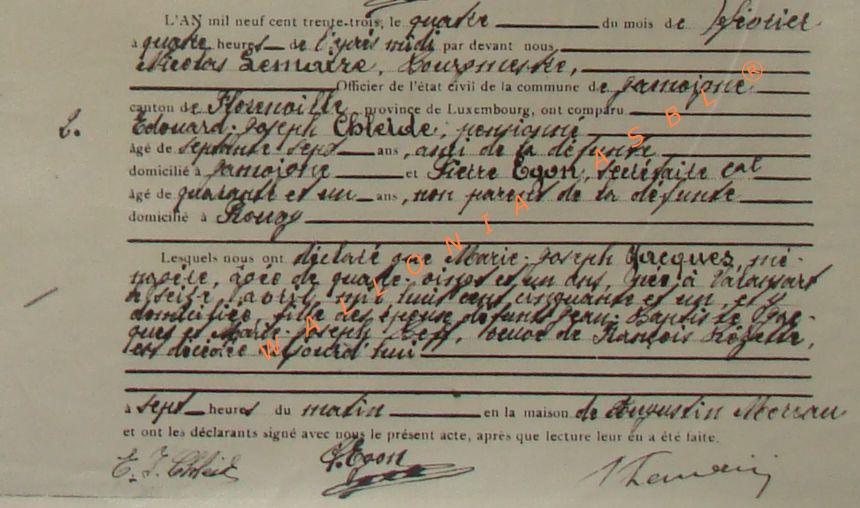 L'AN mil neuf cent trente-trois, le quatre du mois de février
à quatre heures de l'après midi par devant nous
Nicolas Lemaire, Bourgmestre,
Officier de l'état civil de la commune de Jamoigne
canton de Florenville, province de Luxembourg, ont comparu
2. Edouard-Joseph Chleide, pensionné
âgé de septante sept ans, ami de la défunte
domicilié à Jamoigne et Pierre Egon, secrétaire cal
âgé de quarante et un ans, non parent de la défunte
domicilié à
Lesquels nous ont déclaré que Marie-Joseph Jacques, mé-
nagère, âgée de quatre-vingt et un ans, née à Valansart
le seize avril mil huit cent cinquante et un, et y
domiciliée, fille des époux défunts Jean-Baptiste Jac-
ques et Marie-Joseph veuve de François
est décédée aujourd'hui
à sept heures du matin en la maison de Augustin Moreau
et ont les déclarants signé avec nous le présent acte, après que lecture leur en a été faite.
E. J. Chleid P. Egon Lemaire
WALLONIA ASBL ®